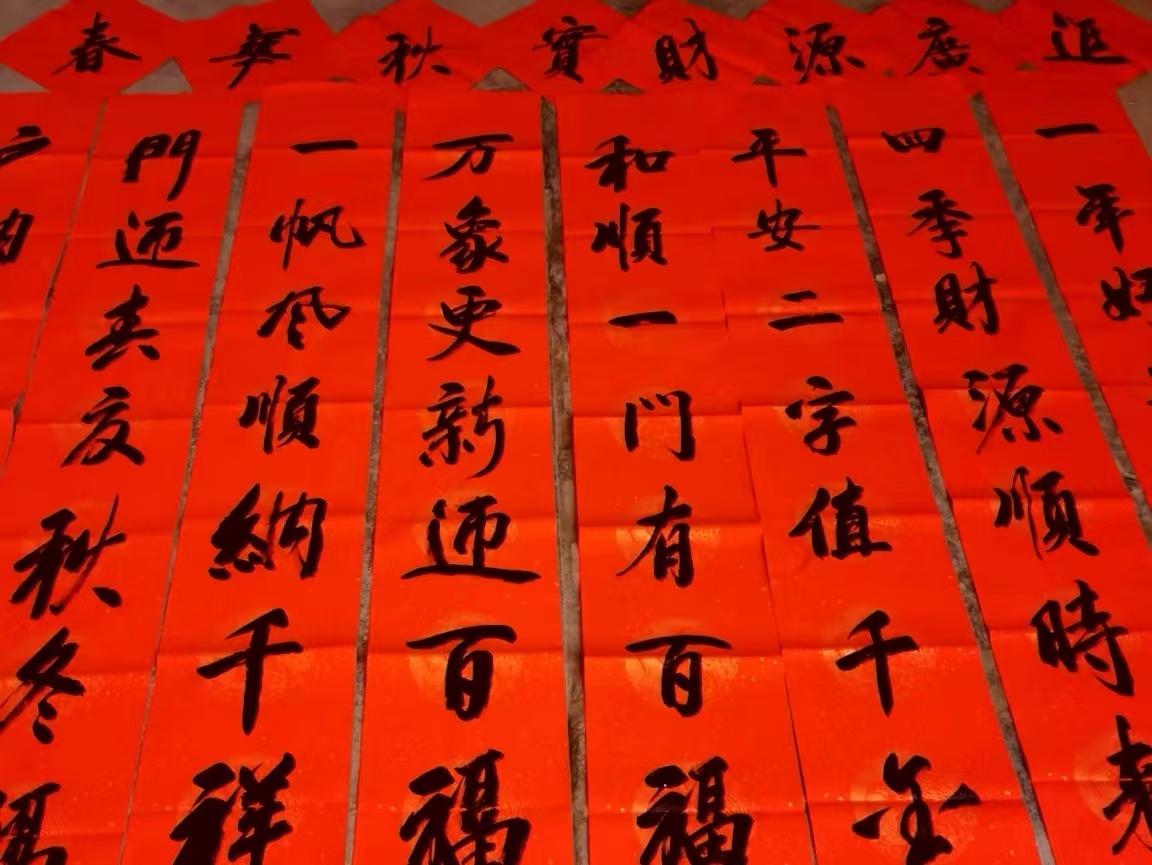 春華秋實財源廣進
一年好
四季財源順時來
平安二字值千金
和順一門有百福
万象更新迎百福
一帆風順納千祥
門迎春夏秋冬福